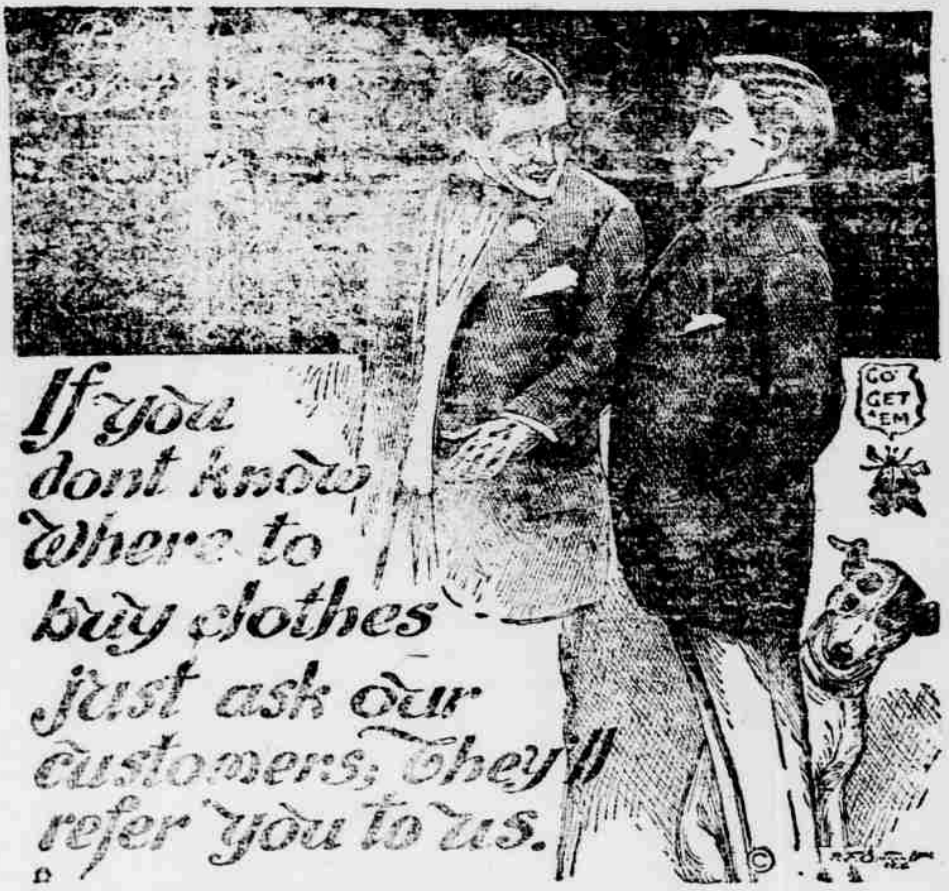 If you
dont know
where to
buy clothes
just ask our
customers; they'll
refer you to us.
GO
GET
'EM
©